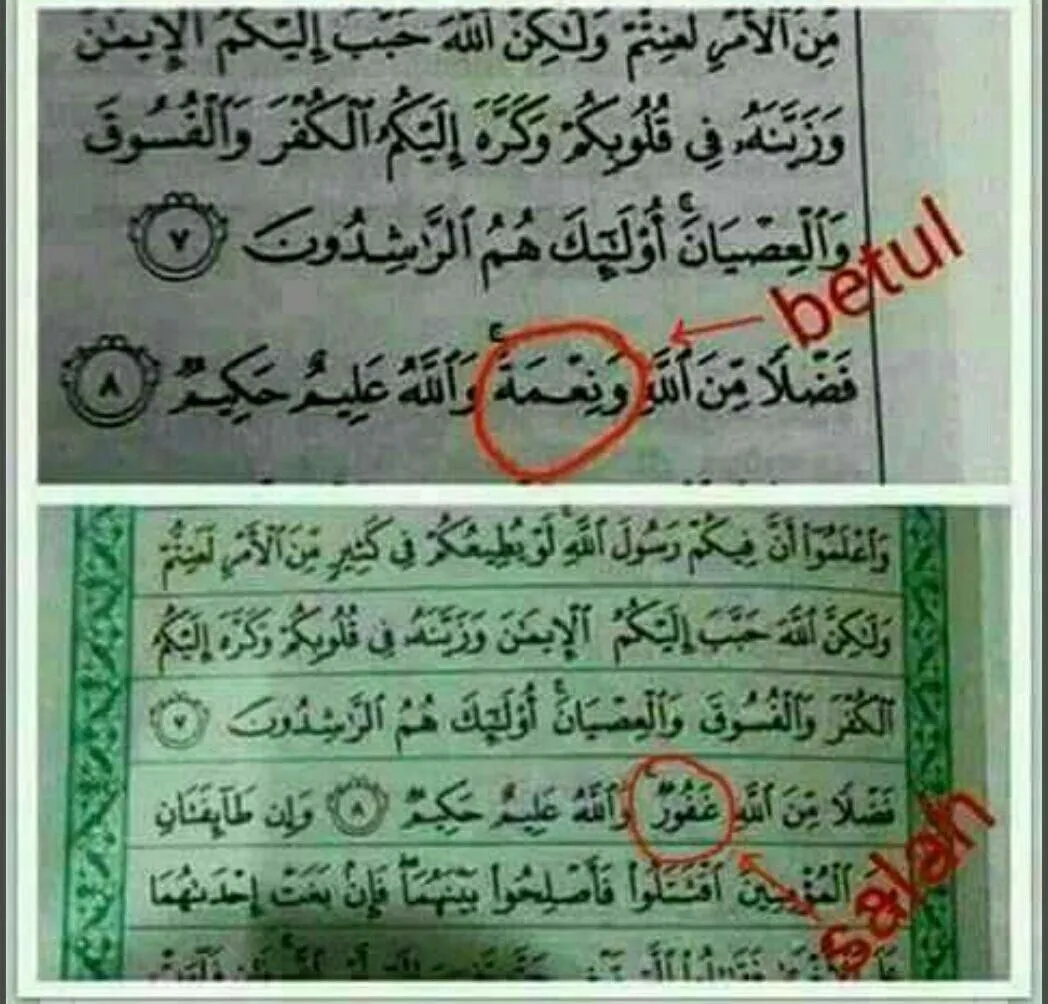 مِّنَ ٱلْأَمْرِ لَعَنِتُّمْ وَلَـٰكِنَّ ٱللَّهَ حَبَّبَ إِلَيْكُمُ ٱلْإِيمَـٰنَ
وَزَيَّنَهُۥ فِى قُلُوبِكُمْ وَكَرَّهَ إِلَيْكُمُ ٱلْكُفْرَ وَٱلْفُسُوقَ
وَٱلْعِصْيَانَ ۚ أُو۟لَـٰٓئِكَ هُمُ ٱلرَّٰشِدُونَ ٧
betul
فَضْلًا مِّنَ ٱللَّهِ وَنِعْمَةً ۚ وَٱللَّهُ عَلِيمٌ حَكِيمٌ ٨
وَٱعْلَمُوٓا۟ أَنَّ فِيكُمْ رَسُولَ ٱللَّهِ ۚ لَوْ يُطِيعُكُمْ فِى كَثِيرٍ مِّنَ ٱلْأَمْرِ لَعَنِتُّمْ
وَلَـٰكِنَّ ٱللَّهَ حَبَّبَ إِلَيْكُمُ ٱلْإِيمَـٰنَ وَزَيَّنَهُۥ فِى قُلُوبِكُمْ وَكَرَّهَ إِلَيْكُمُ
ٱلْكُفْرَ وَٱلْفُسُوقَ وَٱلْعِصْيَانَ ۚ أُو۟لَـٰٓئِكَ هُمُ ٱلرَّٰشِدُونَ ٧
فَضْلًا مِّنَ ٱللَّهِ غَفُورٌ ۚ وَٱللَّهُ عَلِيمٌ حَكِيمٌ ٨ وَإِن طَآئِفَتَانِ
ٱلْمُؤْمِنِينَ ٱقْتَتَلُوا۟ فَأَصْلِحُوا۟ بَيْنَهُمَا ۖ فَإِنۢ بَغَتْ إِحْدَىٰهُمَا
salah